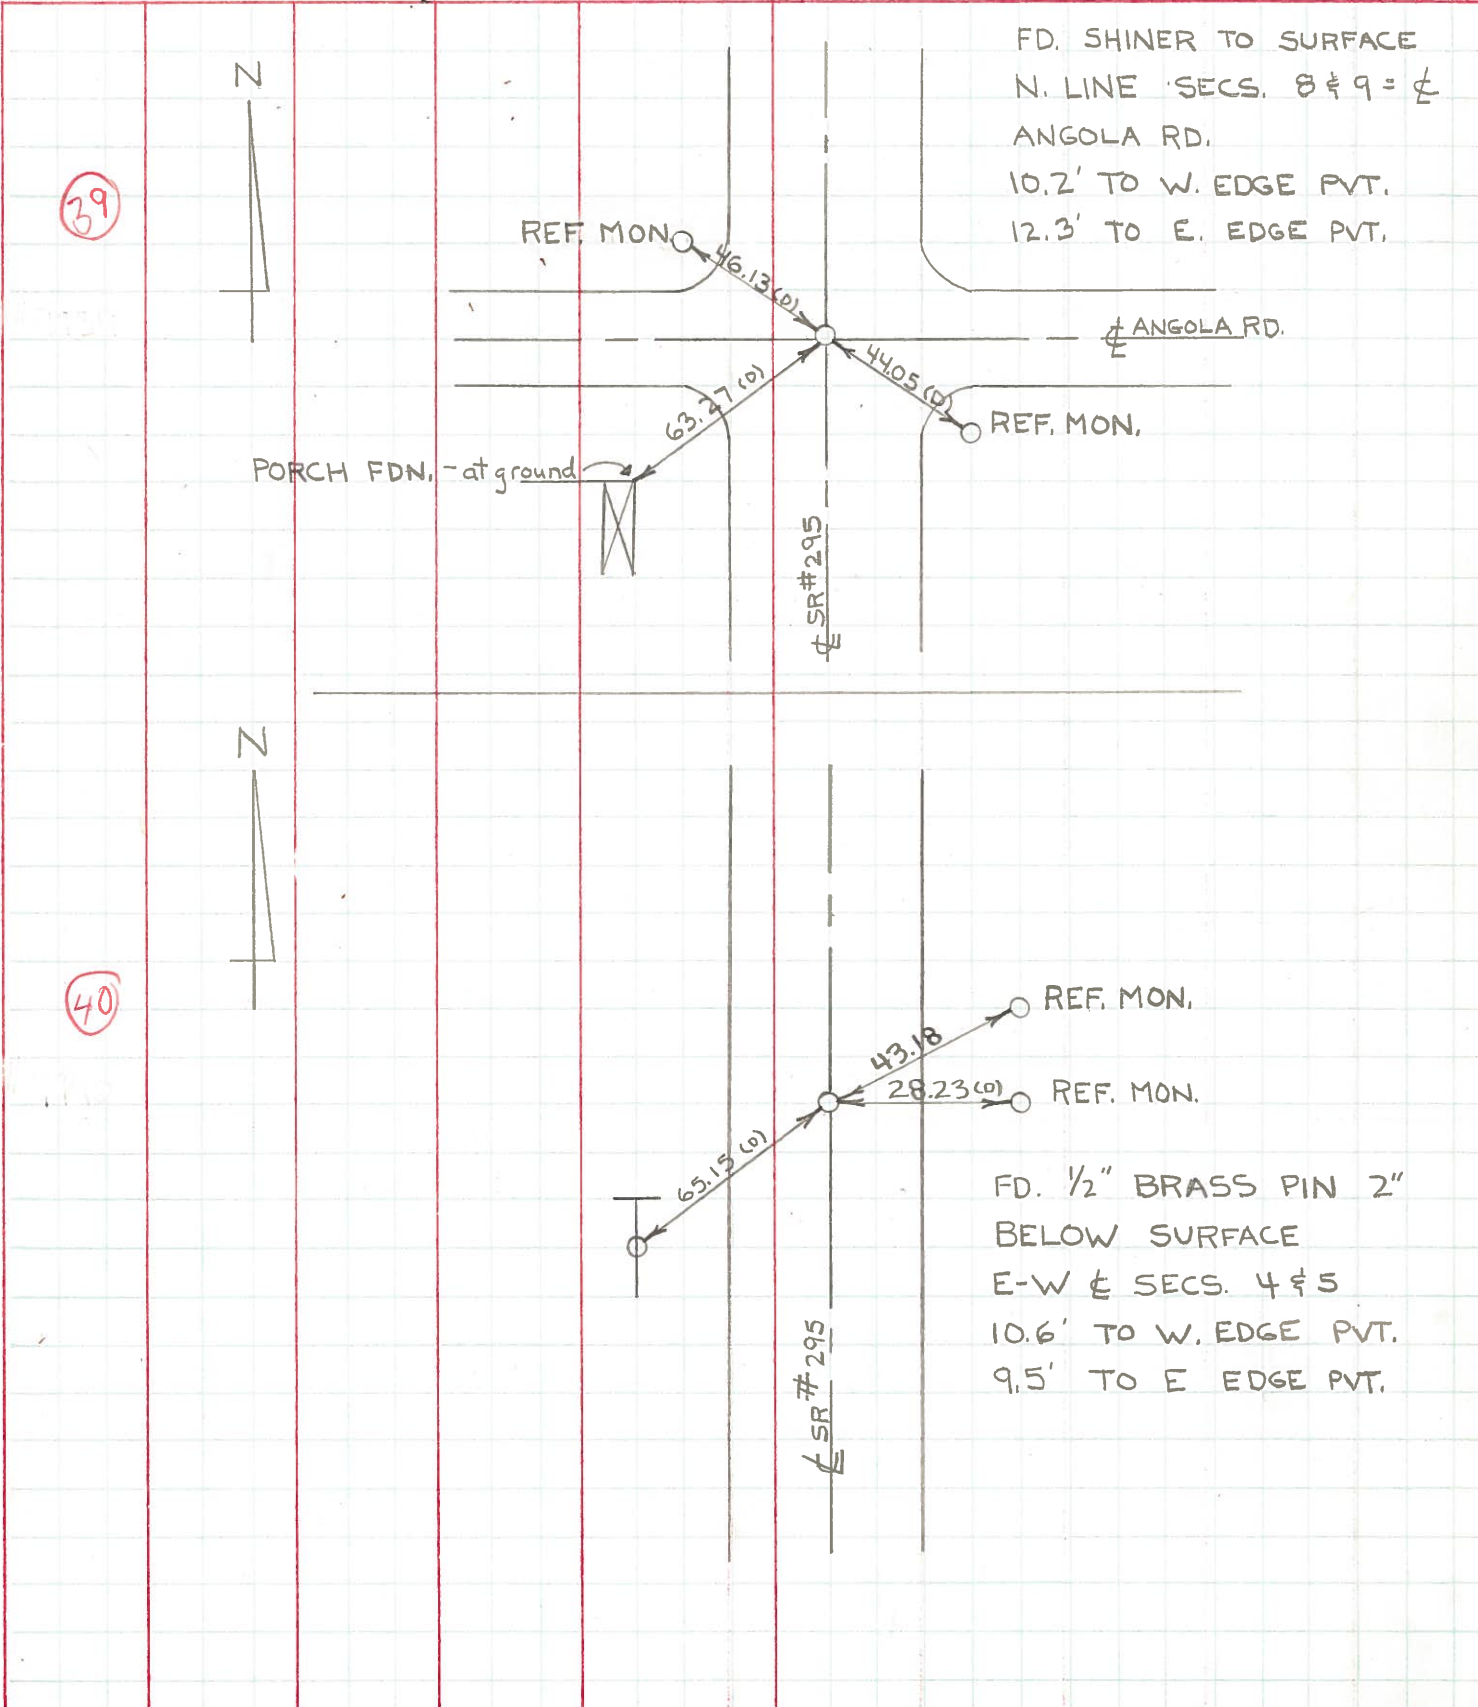 FD. SHINER TO SURFACE
N. LINE SECS. 8 & 9 = ℄
ANGOLA RD.
10.2' TO W. EDGE PVT.
12.3' TO E. EDGE PVT.
N
39
REF. MON.
46.13 (D)
℄ ANGOLA RD.
44.05 (D)
63.27 (D)
REF. MON.
PORCH FDN. - at ground
℄ SR #295
N
40
REF. MON.
43.18
28.23 (D)
REF. MON.
65.15 (D)
FD. 1/2" BRASS PIN 2"
BELOW SURFACE
E-W ℄ SECS. 4 & 5
10.6' TO W. EDGE PVT.
9.5' TO E EDGE PVT.
℄ SR #295